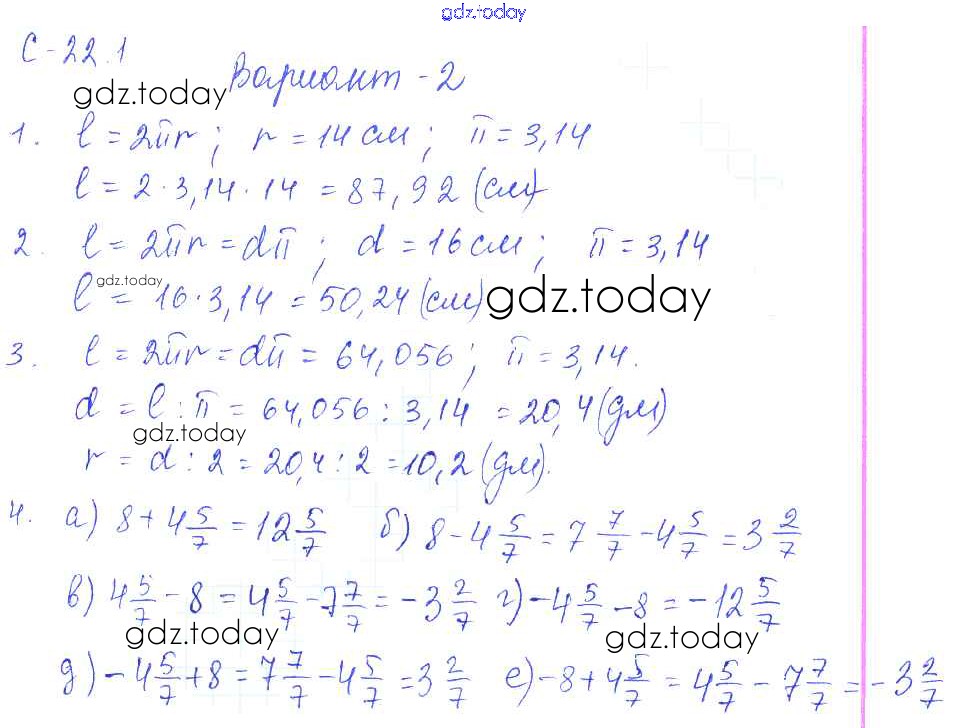 gdz.today
С-22.1
Вариант-2
gdz.today
1. l = 2πr; r = 14 см; π = 3,14
l = 2·3,14·14 = 87,92 (см)
2. l = 2πr = dπ; d = 16 см; π = 3,14
gdz.today
l = 16·3,14 = 50,24 (см)
gdz.today
3. l = 2πr = dπ = 64,056; π = 3,14.
d = l : π = 64,056 : 3,14 = 20,4 (дм)
gdz.today
r = d : 2 = 20,4 : 2 = 10,2 (дм).
4. а) 8 + 4 5/7 = 12 5/7 б) 8 - 4 5/7 = 7 7/7 - 4 5/7 = 3 2/7
в) 4 5/7 - 8 = 4 5/7 - 7 7/7 = -3 2/7 г) -4 5/7 - 8 = -12 5/7
gdz.today gdz.today
д) -4 5/7 + 8 = 7 7/7 - 4 5/7 = 3 2/7 е) -8 + 4 5/7 = 4 5/7 - 7 7/7 = -3 2/7